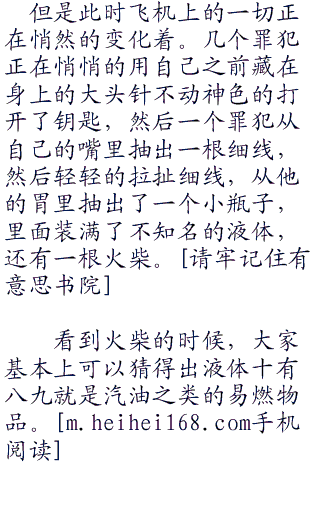 但是此时飞机上的一切正
在悄然的变化着。几个罪犯
正在悄悄的用自己之前藏在
身上的大头针不动神色的打
开了钥匙，然后一个罪犯从
自己的嘴里抽出一根细线，
然后轻轻的拉扯细线，从他
的胃里抽出了一个小瓶子，
里面装满了不知名的液体，
还有一根火柴。[请牢记住有
意思书院]
看到火柴的时候，大家
基本上可以猜得出液体十有
八九就是汽油之类的易燃物
品。[m.heihei168.com手机
阅读]